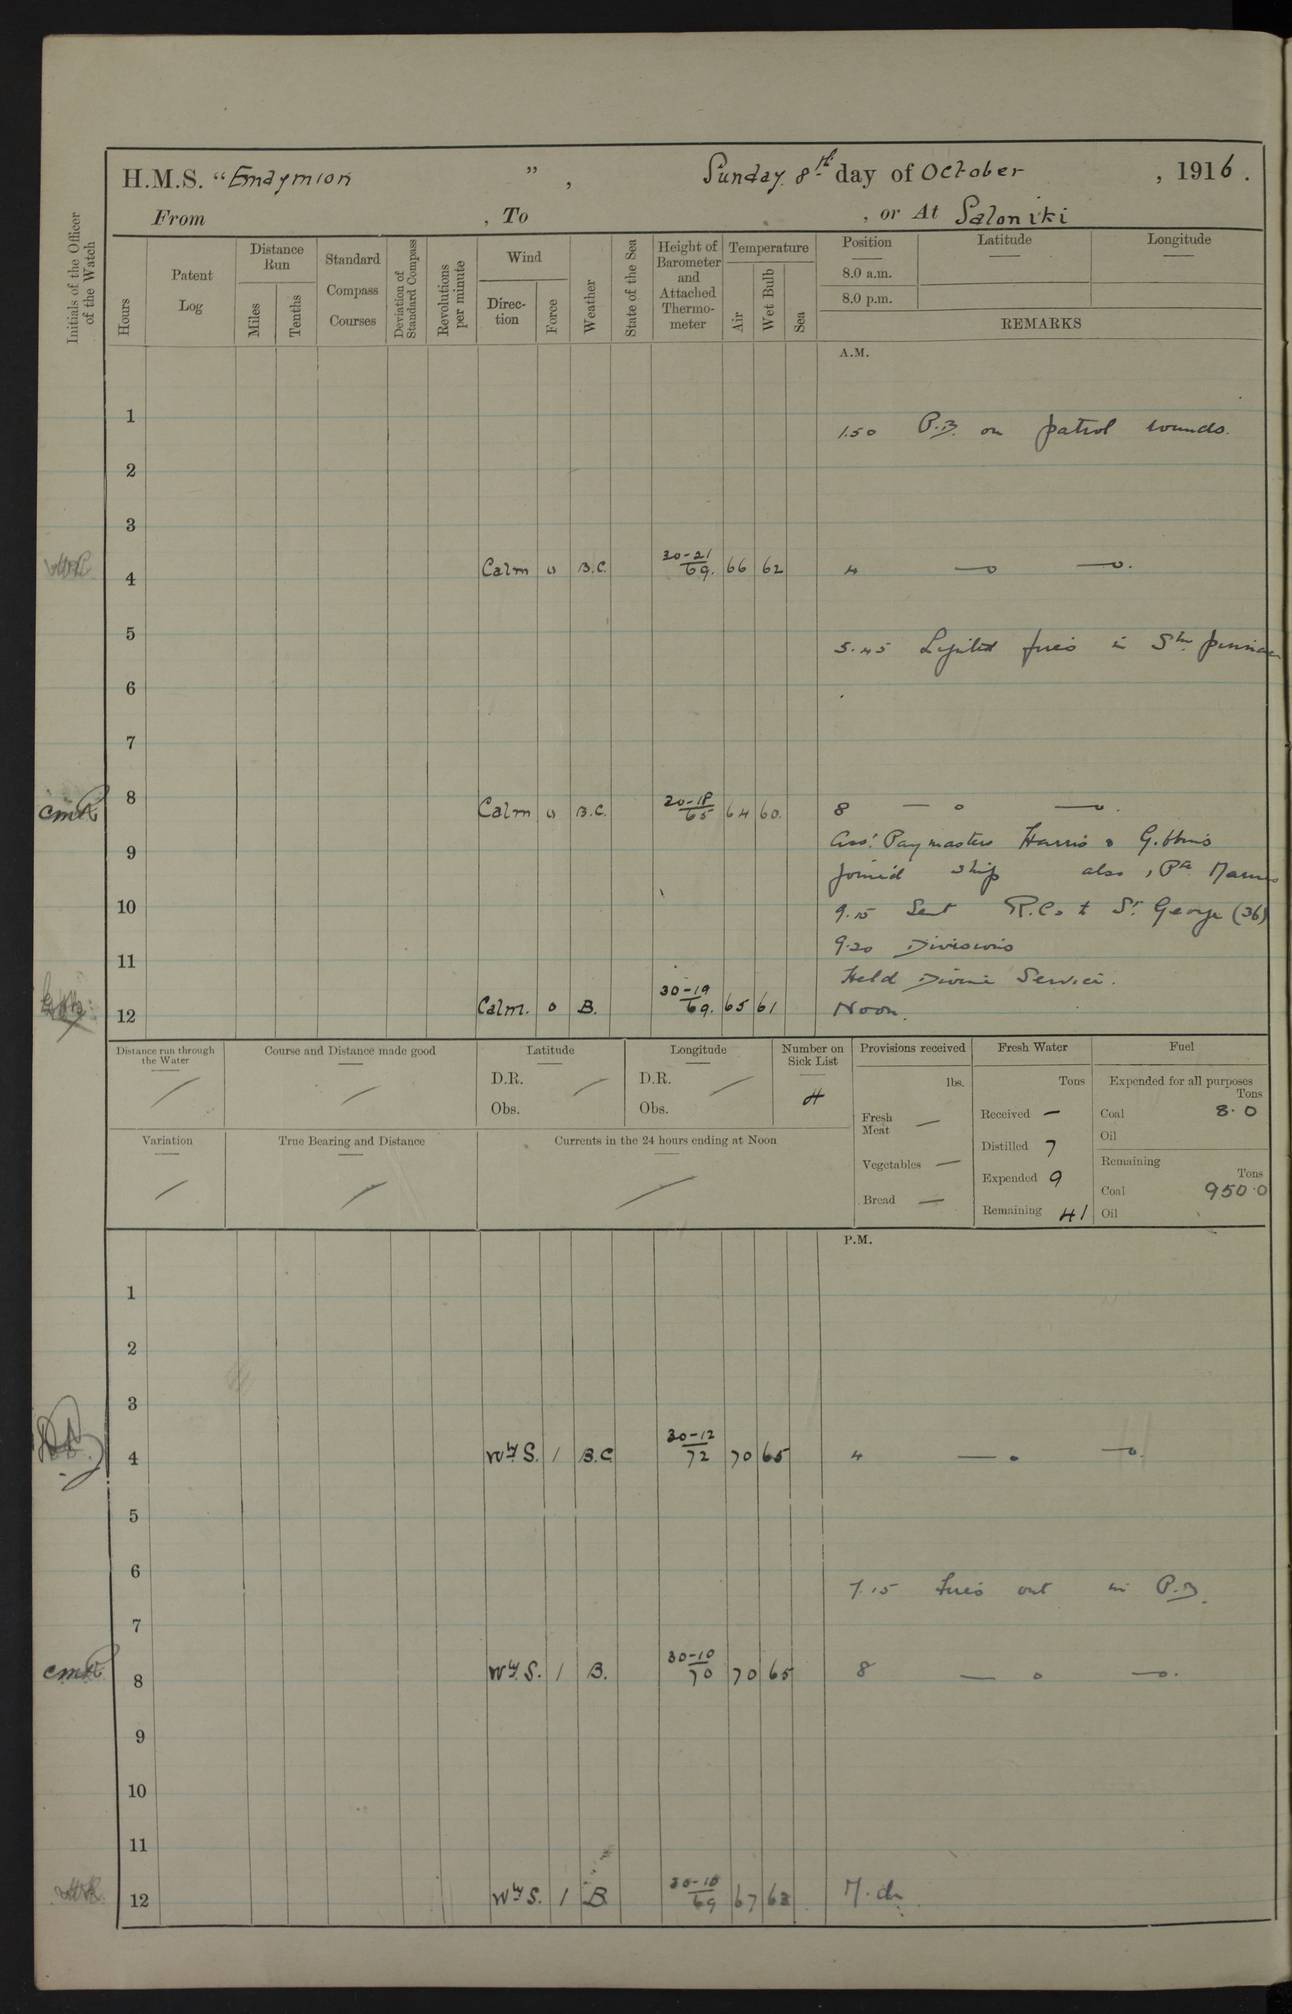 H.M.S. "Endymion", Sunday 8th day of October, 1916.
From , To , or At Saloniki
Initials of the Officer of the Watch
Hours
Patent Log
Distance Run
Miles
Tenths
Standard Compass Courses
Deviation of Standard Compass
Revolutions per minute
Wind
Direc-tion
Force
Weather
State of the Sea
Height of Barometer and Attached Thermo-meter
Temperature
Air
Wet Bulb
Sea
Position Latitude Longitude
8.0 a.m.
8.0 p.m.
REMARKS
A.M.
1
1.50 P.B. on patrol rounds.
2
3
4 Calm 0 B.C. 30-21/69. 66 62 4 —o —o.
5
5.45 Lighted fires in Stm pinnace
6
7
cmR 8 Calm 0 B.C. 20-18/65 64 60. 8 — o —o.
9
Asst. Paymasters Harris & Gibbins
joined ship also 1 Pte
10
9.15 Sent R.Cs to St George (36)
9.20 Divisions
11
Held Divine Service.
12 Calm. 0 B. 30-19/69. 65 61 Noon.
Distance run through the Water
Course and Distance made good
Latitude
D.R.
Obs.
Longitude
D.R.
Obs.
Number on Sick List
4
Provisions received
lbs.
Fresh Meat —
Vegetables —
Bread —
Fresh Water
Tons
Received —
Distilled 7
Expended 9
Remaining 41
Fuel
Expended for all purposes
Tons
Coal 8.0
Oil
Remaining
Tons
Coal 950.0
Oil
Variation
True Bearing and Distance
Currents in the 24 hours ending at Noon
P.M.
1
2
3
4 Wly S. 1 B.C 30-12/72 70 65 4 — o —o.
5
6
7.15 Fires out in P.B.
7
cmR 8 Wly S. 1 B. 30-10/70 70 65 8 — o —o.
9
10
11
12 Wly S. 1 B 30-10/69 67 63